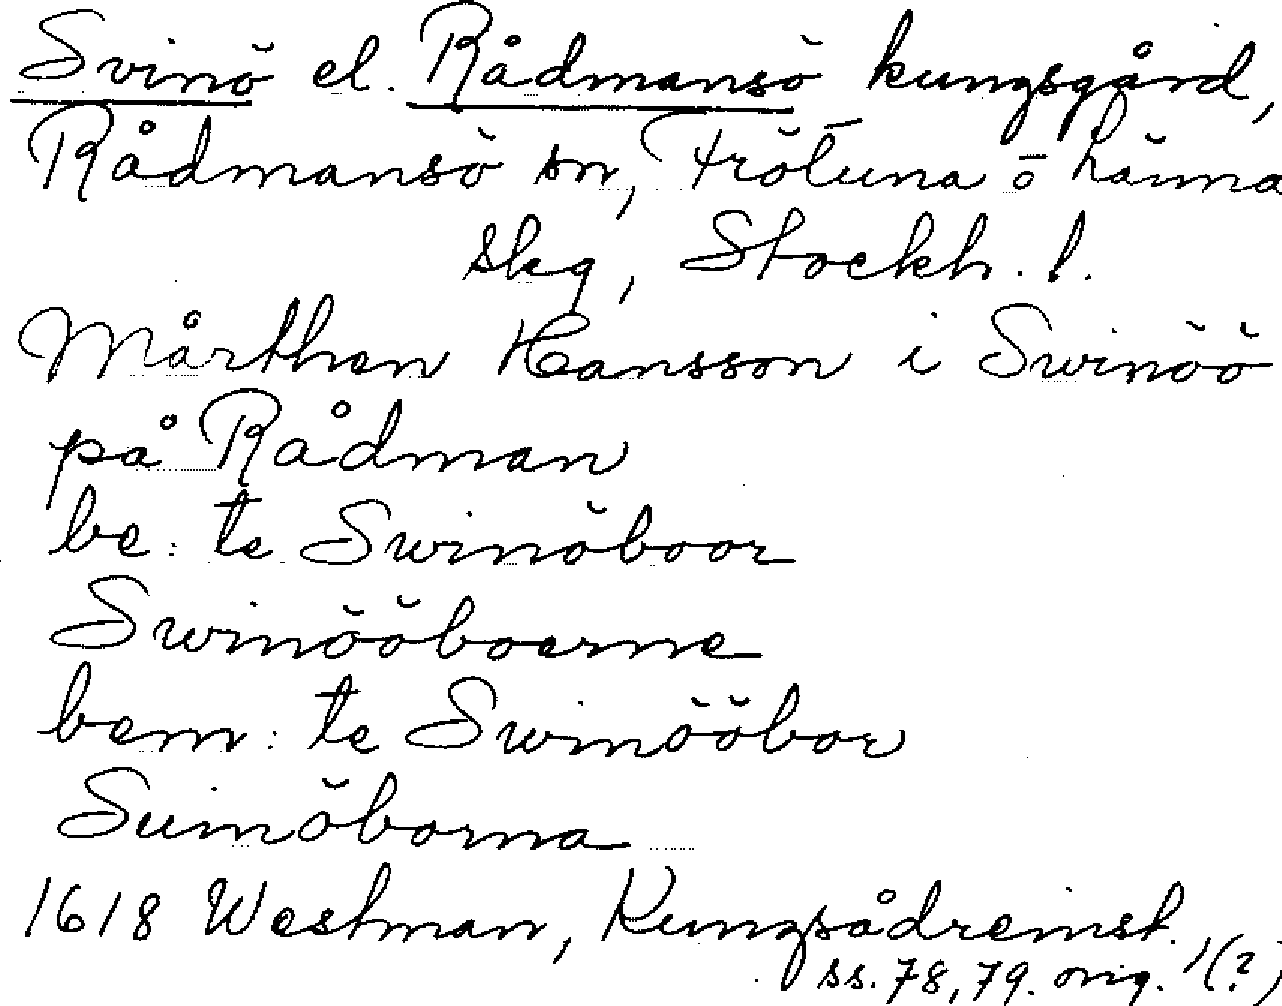 Svinö el. Rådmansö kungsgård,
Rådmansö sn, Frötuna o Länna
skg, Stockh. l.
Mårthen Hansson i Swinöö
på Rådman
be: te Swinöboor
Swinööboerne
bem: te Swinööbor
Suinöborna
1618 Westman, Kungsådreinst.
ss. 78, 79. orig. 1(?)